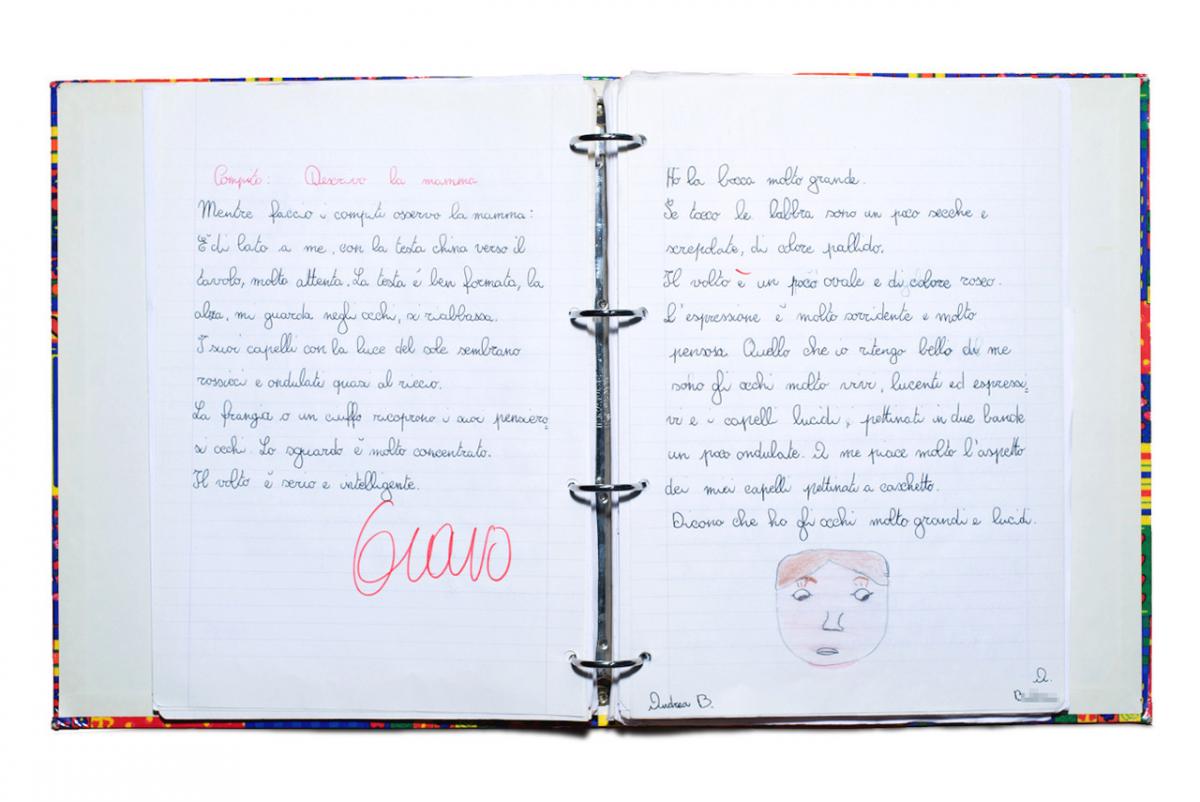 Compito: Descrivo la mamma
Mentre faccio i compiti osservo la mamma:
È di lato a me, con la testa china verso il
tavolo, molto attenta. La testa é ben formata, la
alza, mi guarda negli occhi, si riabbassa.
I suoi capelli con la luce del sole sembrano
rossicci e ondulati quasi al riccio.
La frangia o un ciuffo ricoprono i suoi pensiero
si occhi. Lo sguardo è molto concentrato.
Il volto è serio e intelligente.
Bravo
Ho la bocca molto grande.
Se tocco le labbra sono un poco secche e
screpolate, di colore pallido.
Il volto è un poco ovale e di colore roseo.
L'espressione è molto sorridente e molto
pensosa. Quello che io ritengo bello di me
sono gli occhi molto vivi, lucenti ed espressi
vi e i capelli lucidi, pettinati in due bande
un poco ondulate. A me piace molto l'aspetto
dei miei capelli pettinati a caschetto.
Dicono che ho gli occhi molto grandi e lucidi.
Andrea B.
A.
B